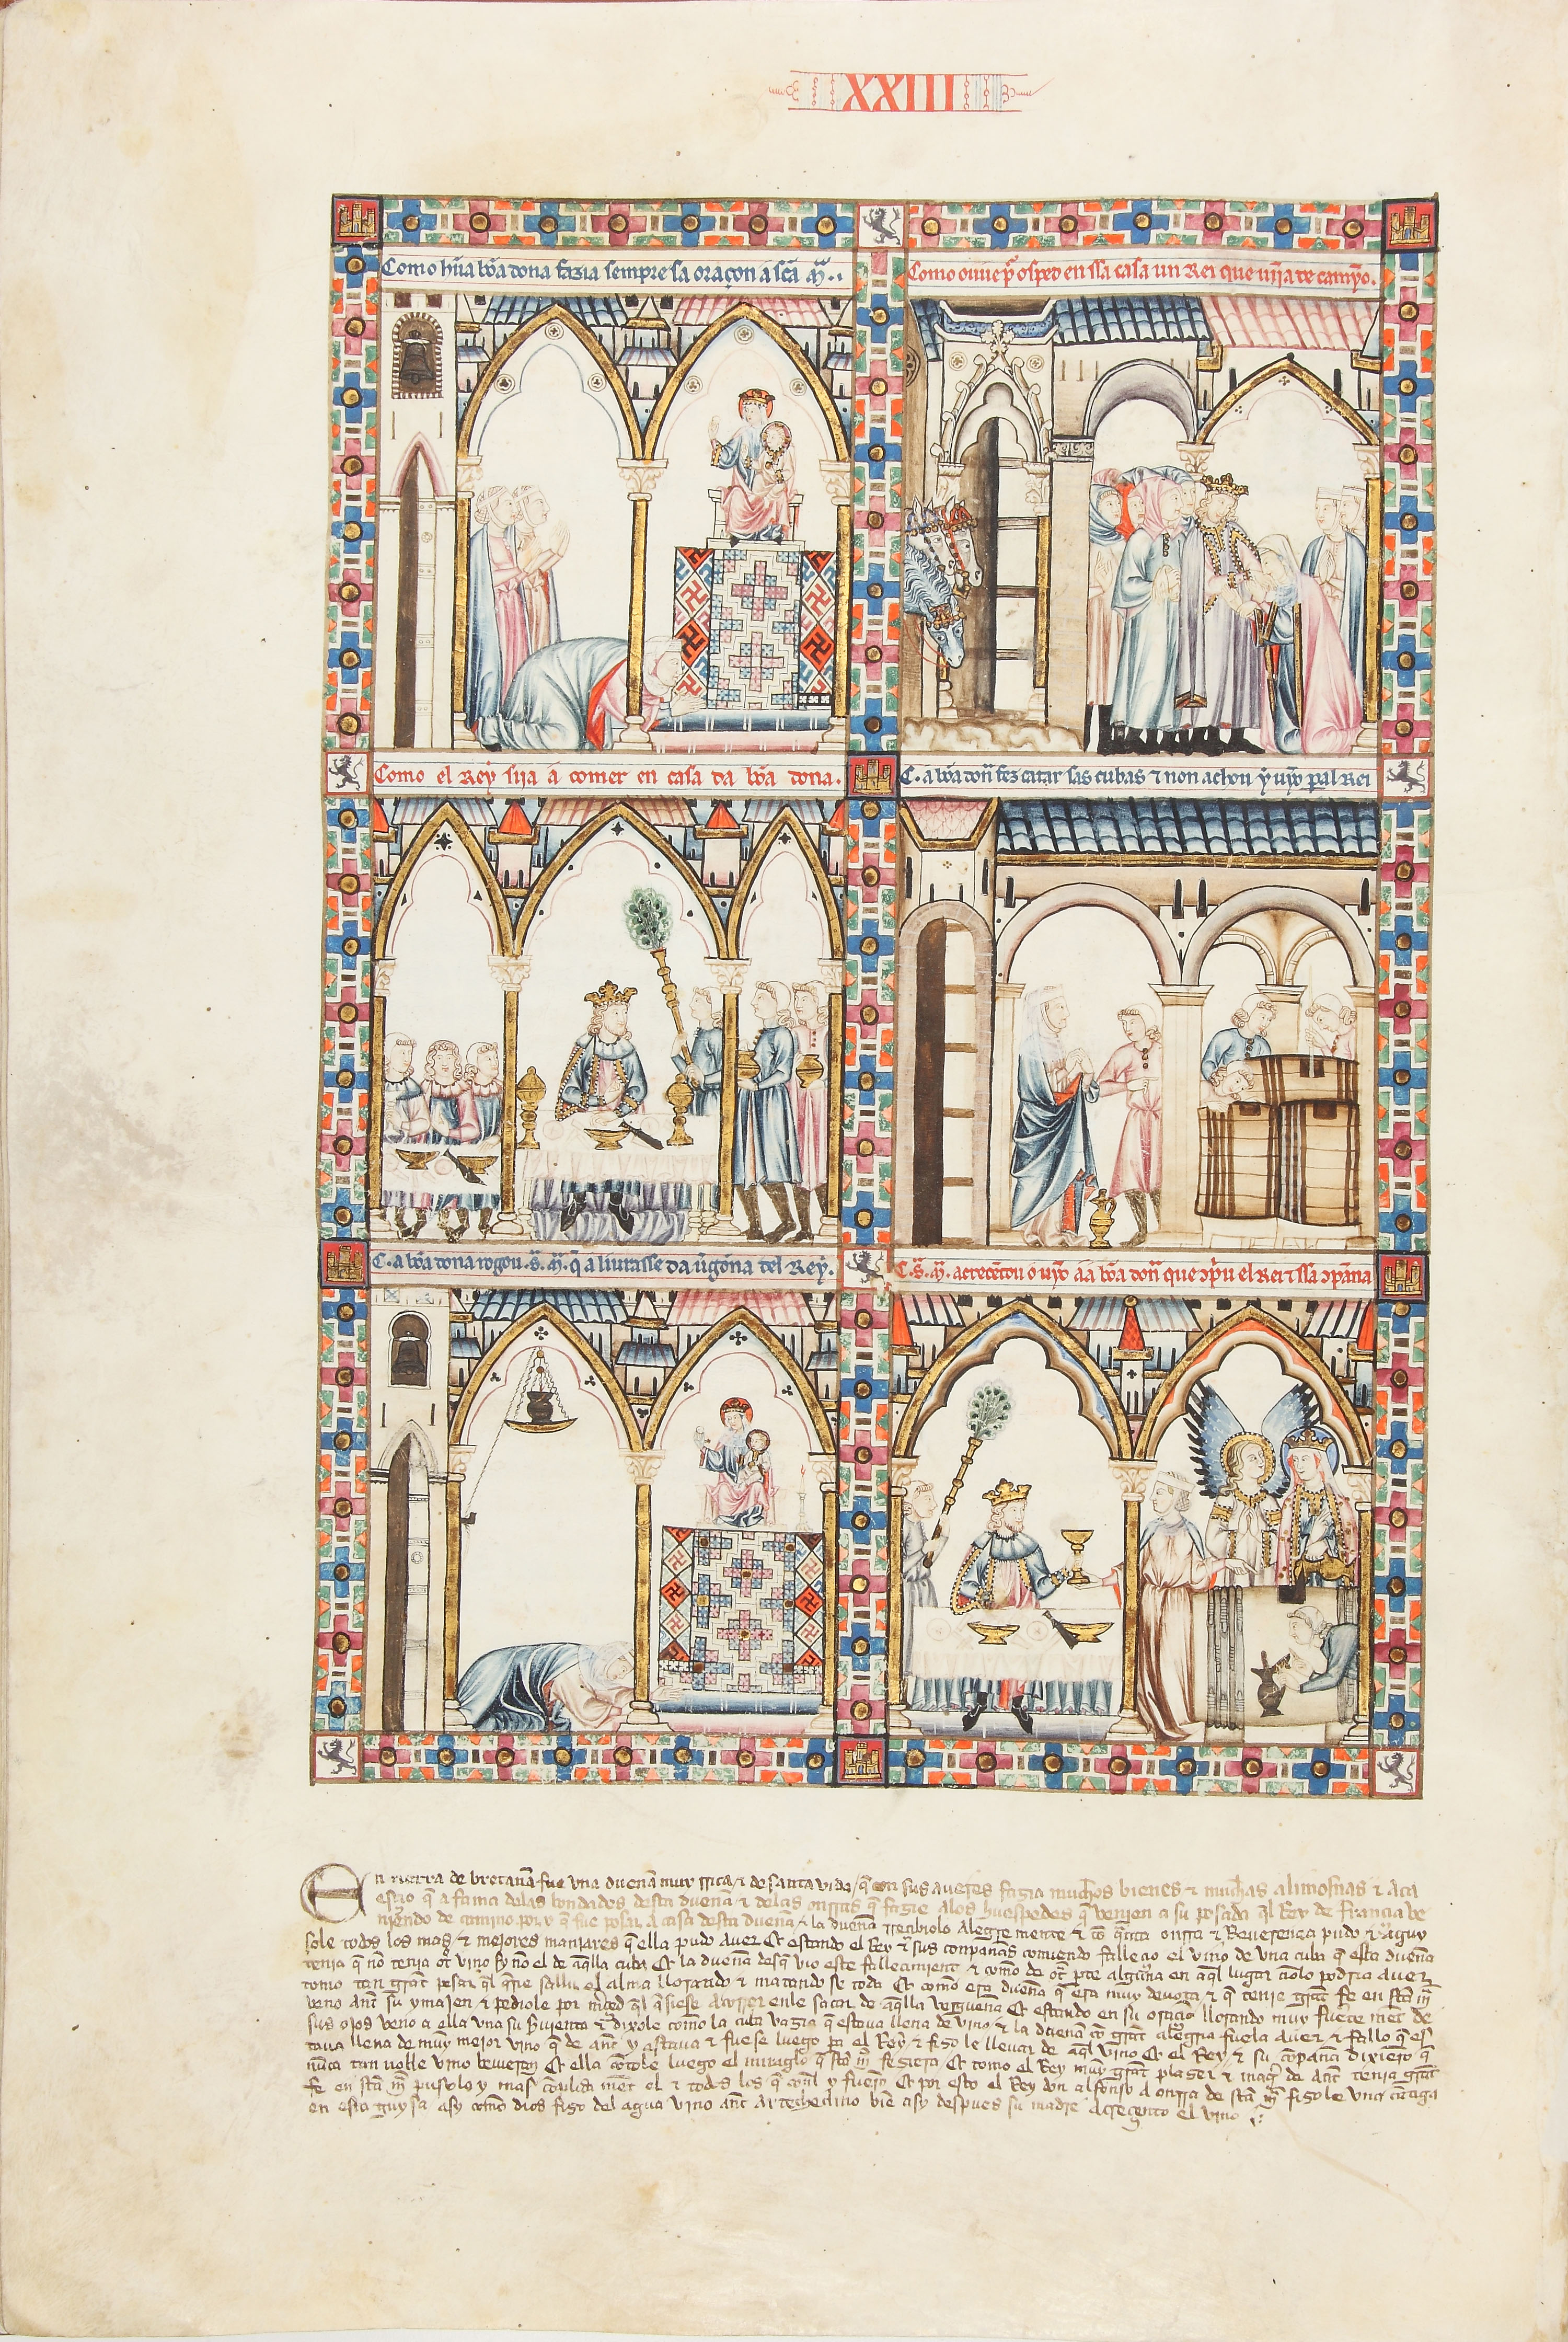 XXIII
Como hũa bõa dona fazia sempre sa oraçon a scã Mª..
Como ouue pᵒ osped en ssa casa un Rei que uĩja de camỹo.
Como el Rey sija a comer en casa da bõa dona.
C. a bõa donª fez catar sas cubas ⁊ non achou ỹ uỹo pal Rei
C. a bõa dona rogou. S. M. q̃ a liurasse da ũgõna del Rey.
C. S. M. acreçẽtou o uỹo áá bõa donª que ɔpriu el Rei ⁊ ssa ɔpãna
En tierra de bretanã fue vna duenã muy rrica ⁊ de santa vida / q̃ con sus aueres fazia muchos bienes ⁊ muchas alimosnas ⁊ aca
esçio q̃ a fama delas bondades desta duenã ⁊ delas onrras q̃ fazie alos huespedes q̃ venien a su posada q̃l Rey de françia ve
niendo de camino por y q̃ fue posar a casa desta duenã ⁊ la duenã rreçibiolo alegre mente ⁊ cõ q̃nta onrra ⁊ Reuerençia pudo ⁊ aguy
sole todos los mas ⁊ mejores manjares q̃ ella pudo auer Et estando el Rey ⁊ sus conpañas comiendo falleçio el vino de vna cuba q̃ esta dueña
tenia q̃ nõ tenia ot̃ vino sy nõ el de aq̃lla cuba Et la dueña desq̃ vio este falleçimient̃ ⁊ como de ot̃ pte alguna en aq̃l lugar nõlo podria auer
tomo tan grãt pesar q̃l q̃rie sallir el alma llorando ⁊ matando se toda Et como esta dueña q̃ era muy deuota ⁊ q̃ tenie grãt fe en stã mª
veno ant̃ su ymajen ⁊ pediole por mrçed q̃l q̃siese acorrer en le sacar de aq̃lla verguenã Et estando en su oraçio llorando muy fuerte met̃ de
sus ojos veno a ella vna su siruienta ⁊ dixole como la cuba vazia q̃ estaua llena de vino ⁊ la duenã cõ grãt alegria fuela a ver ⁊ fallo q̃ es
taua llena de muy mejor vino q̃ de ant̃ y estaua ⁊ fuese luego pa el Rey ⁊ fizo le lleuar de aq̃l vino Et el Rey ⁊ su conpanã dixierõ q̃
nũca tan noble vino beuieran Et ella cõtole luego el miraglo q̃ stã mª fiziera Et tomo el Rey muy grãt plazer ⁊ mag̃r de ant̃ tenia grãt
fe en stã mª pusola y mas conplida met̃ el ⁊ todos los q̃ conel y fuerõ Et por esto el Rey don alfonso a onrra de stã mª fizole vna cãtiga
en esta guysa asy como dios fizo del agua vino ant̃ architeclino bie asy despues su madre acreçento el vino